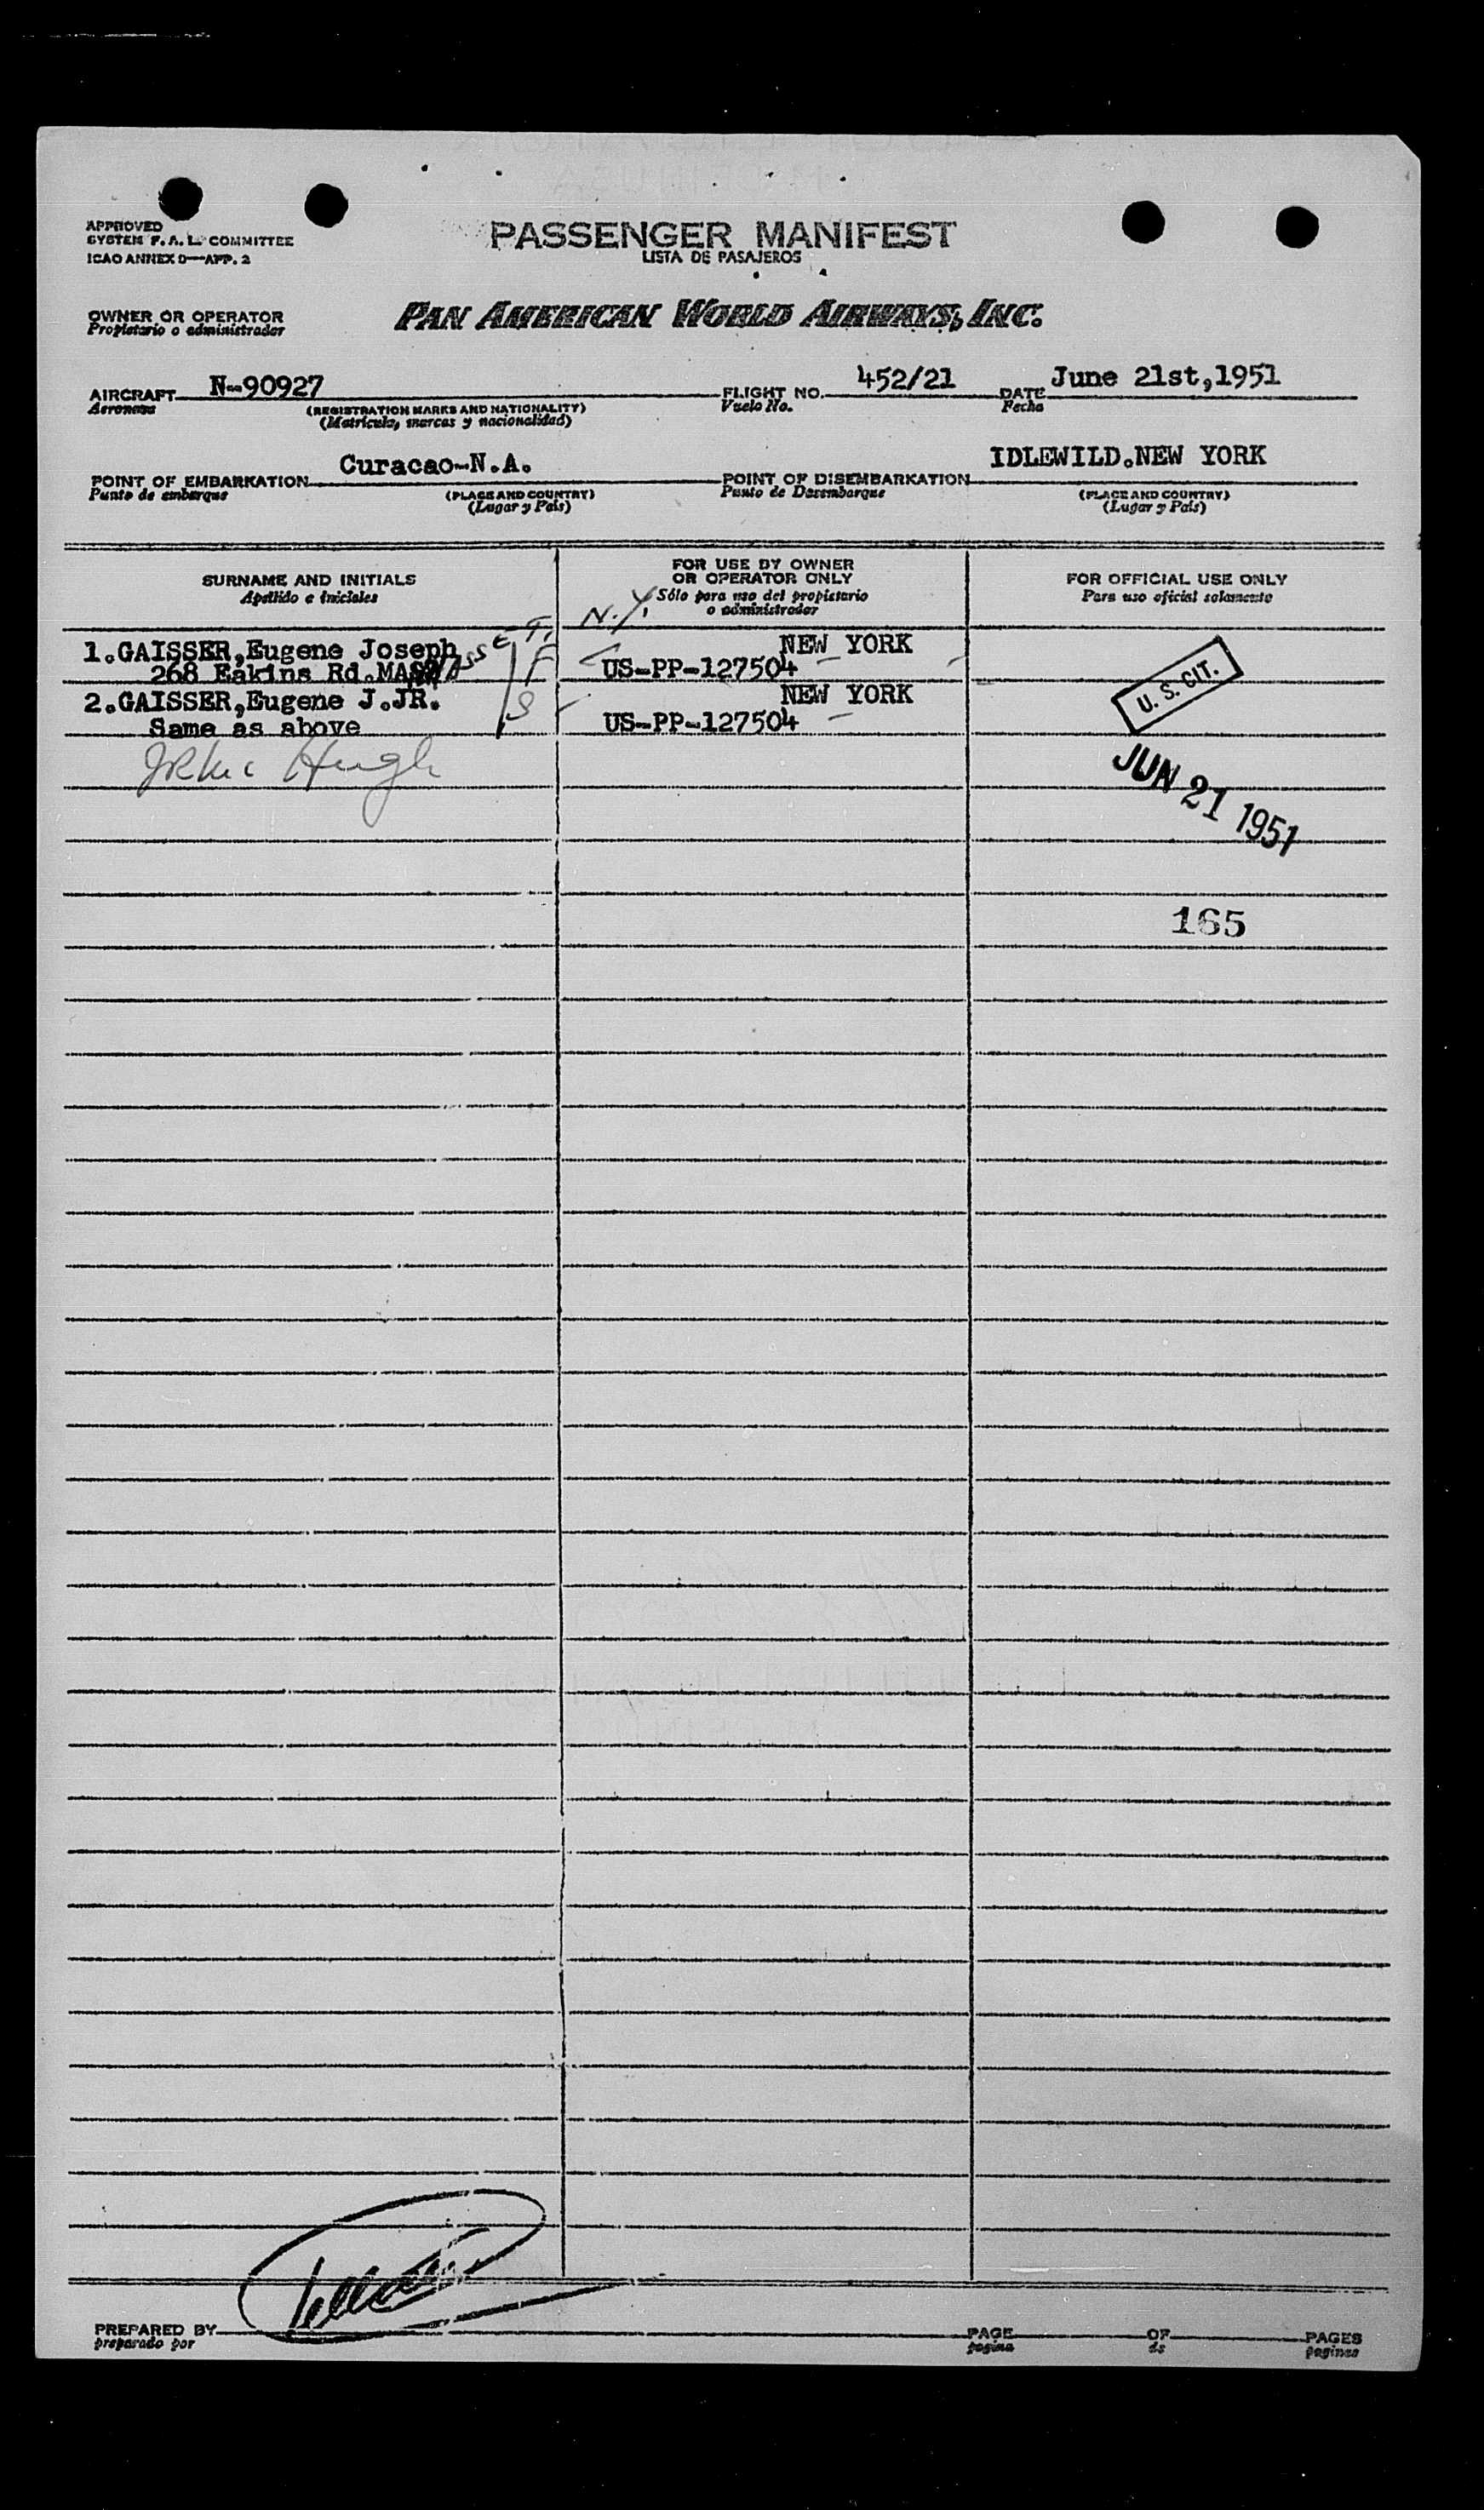 APPROVED
SYSTEM F. A. L. COMMITTEE
ICAO ANNEX 9—APP. 2
PASSENGER MANIFEST
LISTA DE PASAJEROS
OWNER OR OPERATOR
Propietario o administrador
PAN AMERICAN WORLD AIRWAYS, INC.
AIRCRAFT N-90927
Aeronave
(REGISTRATION MARKS AND NATIONALITY)
(Matrícula, marcas y nacionalidad)
FLIGHT NO. 452/21
Vuelo No.
DATE June 21st,1951
Fecha
POINT OF EMBARKATION Curacao-N.A.
Punto de embarque
(PLACE AND COUNTRY)
(Lugar y País)
POINT OF DISEMBARKATION IDLEWILD.NEW YORK
Punto de Desembarque
(PLACE AND COUNTRY)
(Lugar y País)
SURNAME AND INITIALS
Apellido e iniciales
FOR USE BY OWNER
OR OPERATOR ONLY
Sólo para uso del propietario
o administrador
FOR OFFICIAL USE ONLY
Para uso oficial solamente
N.Y.
1.GAISSER,Eugene Joseph NEW YORK
268 Eakins Rd.MAN US-PP-127504
F
2.GAISSER,Eugene J.JR. NEW YORK
S
Same as above US-PP-127504
Hugh
U. S. CIT.
JUN 21 1951
165
PREPARED BY
preparado por
PAGE OF PAGES
pagina de paginas